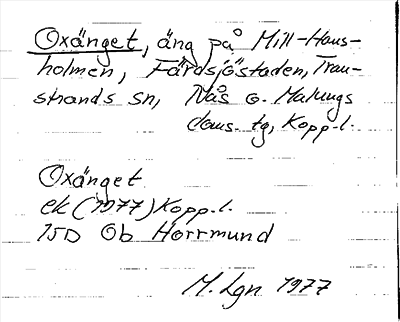 Oxänget, äng på Mill-Haus-
holmen, Färdsjöstaden, Tran-
strands sn, Nås o. Malungs
doms. tg, Kopp. l.
Oxänget
ek (1977) Kopp. l.
15D 0b Horrmund
M. Lgn 1977